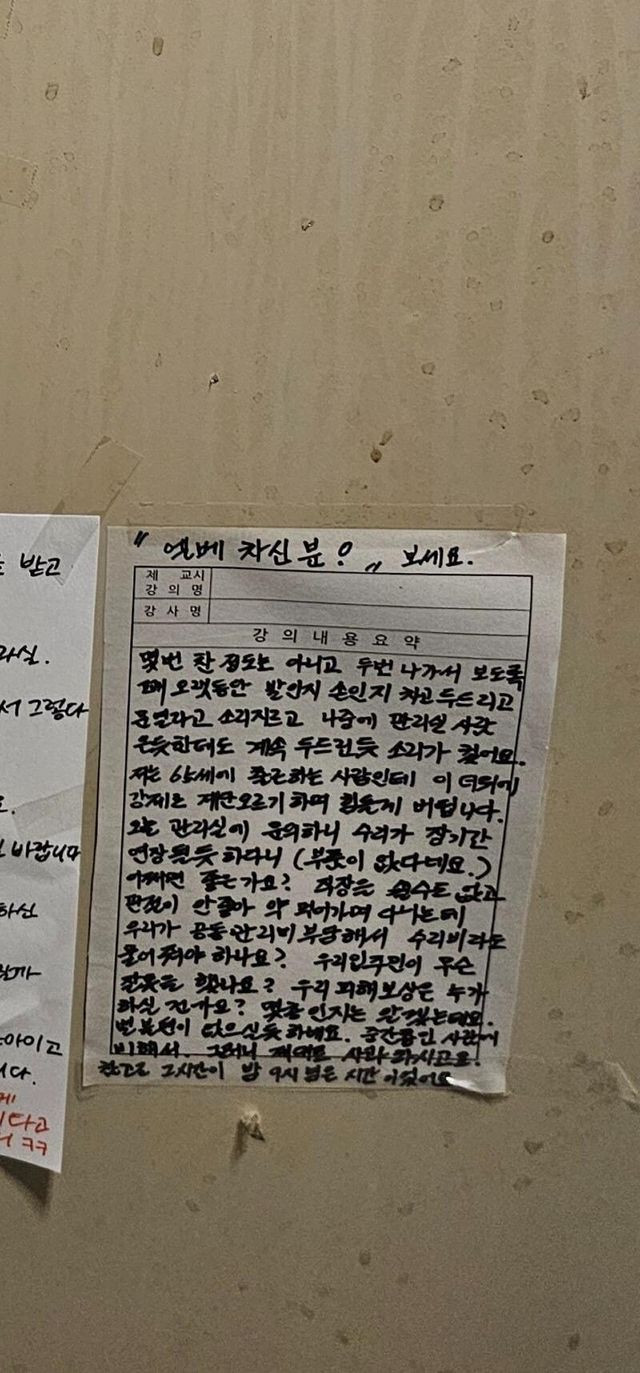 받고
서 그렇다
바랍니다
하신
아이고
니다.
ㅋㅋ
" 엘베 차신분? " 보세요.
제 교시
강 의 명
강 사 명
강 의 내 용 요 약
몇번 찬 정도는 아니고 두번 나가서 보도록
오랫동안 발인지 손인지 차고 두드리고
소리지르고 나중에 관리실 사람
온듯한데도 계속 두드린듯 소리가 컸어요.
저는 6시에 출근하는 사람인데 이 더위에
강제로 계단오르기하며 힘들게 버팁니다.
오늘 관리실에 문의하니 수리가 장기간
연장될듯 하다니 (부품이 없다네요.)
어쩌면 좋은가요? 직장을 쉴수도 없고
관절이 안좋아 약 먹어가며 다니는데
우리가 공동관리비 부담해서 수리비라도
물어줘야 하나요? 우리입주민이 무슨
잘못을 했나요? 우리 피해보상은 누가
하실 건가요? 몇층인지는 알겠는데요.
없으신듯 하네요. 층간소음 사과에
비해서. 그러니 제대로 사과하시고요.
참고로 그시간이 밤 9시 넘은 시간이었어요